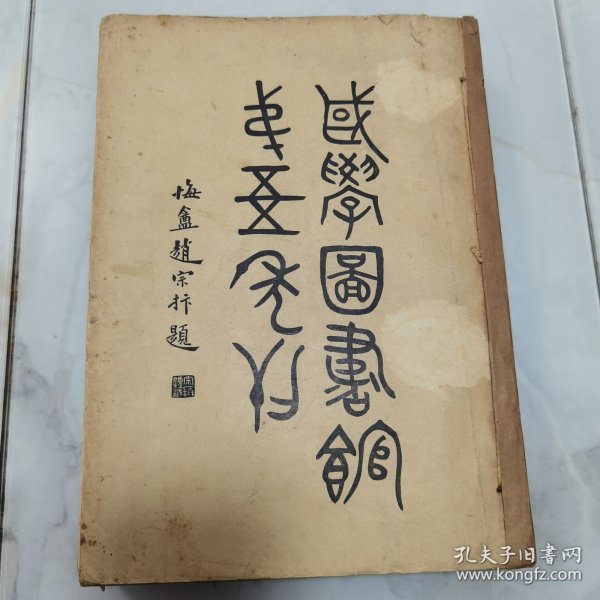 國學圖書館
弟五年刊
悔盦趙宗抃題
孔夫子旧书网
www.kongfz.com